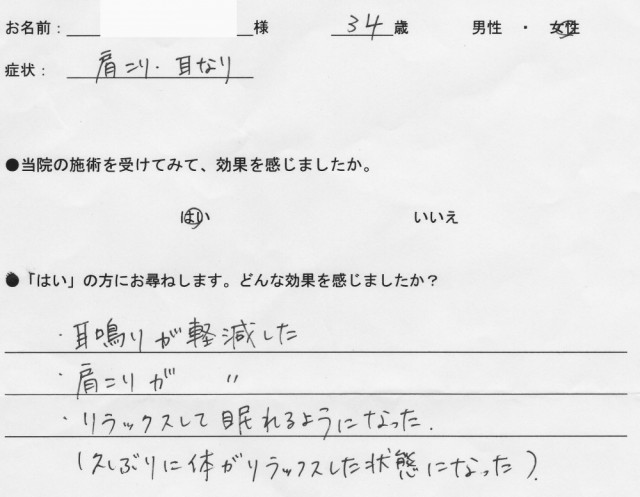 お名前： 様 34 歳 男性 ・ 女性
症状： 肩こり・耳なり
●当院の施術を受けてみて、効果を感じましたか。
はい いいえ
●「はい」の方にお尋ねします。どんな効果を感じましたか？
・耳鳴りが軽減した
・肩こりが 〃
・リラックスして眠れるようになった．
（久しぶりに体がリラックスした状態になった）．